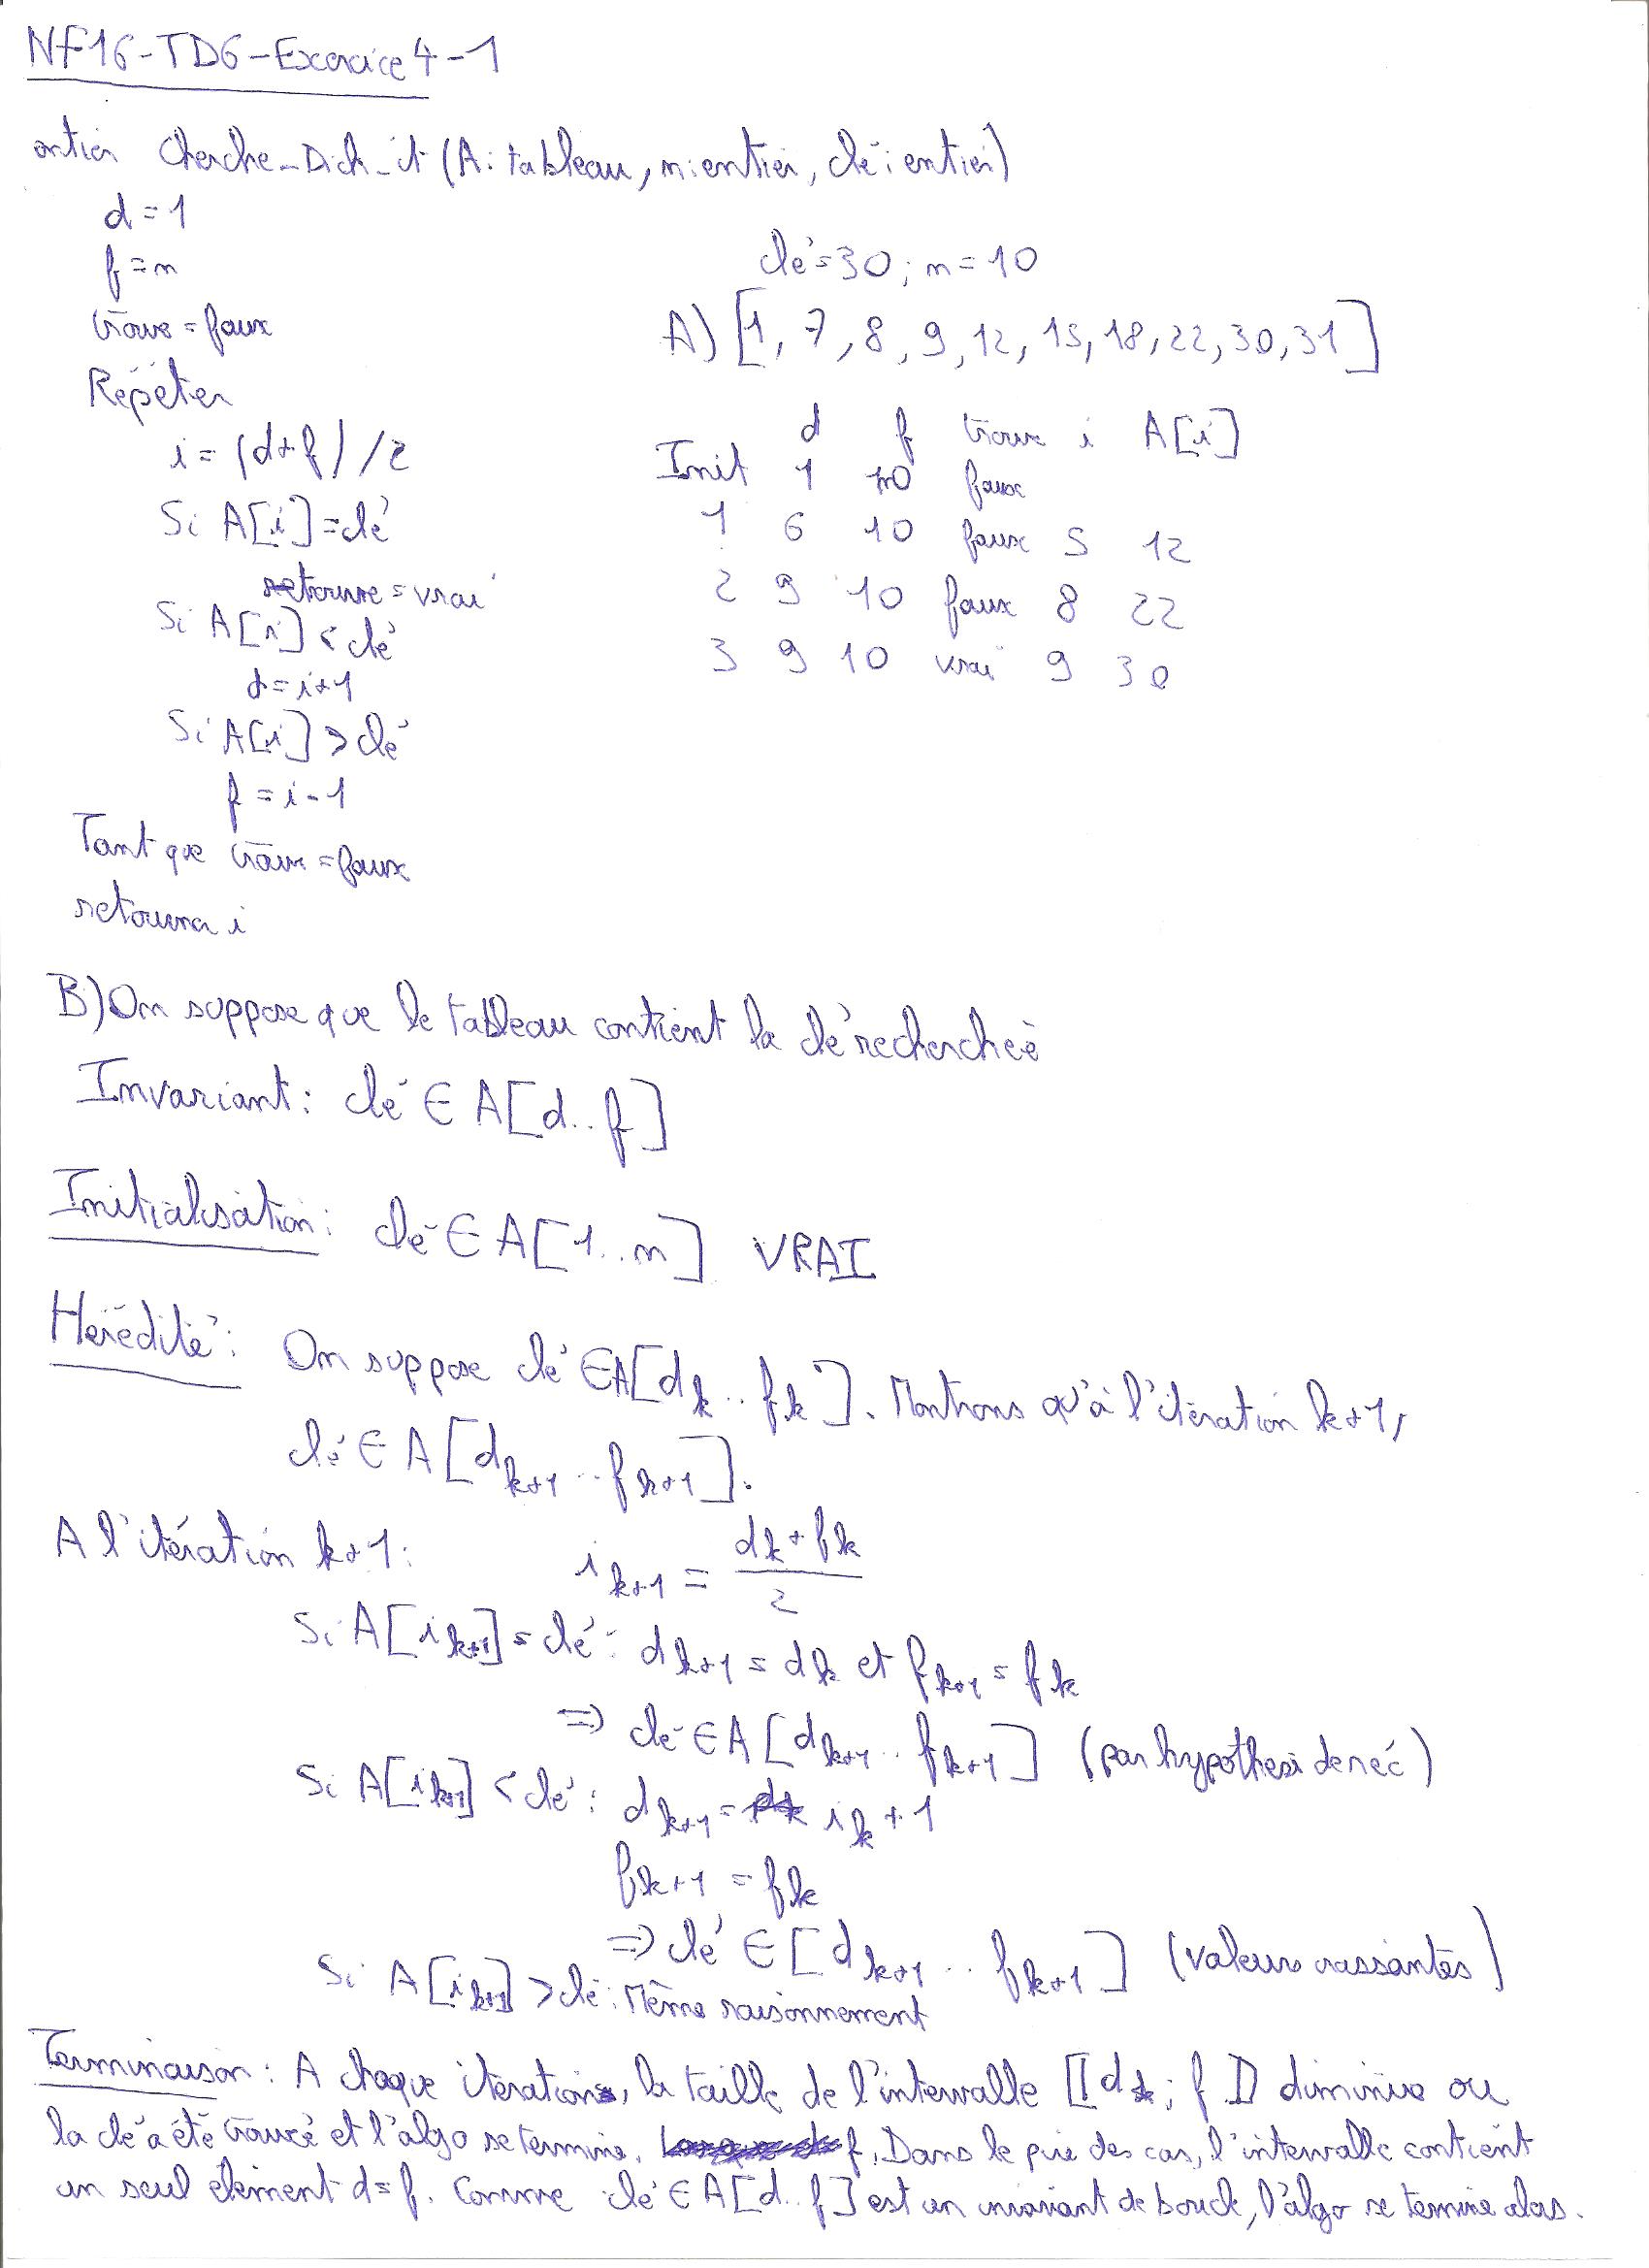 NF16-TD6-Exercice 4-1
entier Cherche_Dich_it (A: tableau, n: entier, clé: entier)
d = 1
f = n
trouve = faux
Répéter
i = (d+f)/2
Si A[i] = clé
retourne = vrai
Si A[i] < clé
d = i+1
Si A[i] > clé
f = i-1
Tant que trouve = faux
retourner i
clé = 30; n = 10
A) [1, 7, 8, 9, 12, 15, 18, 22, 30, 31]
d f trouve i A[i]
Init 1 10 faux
1 6 10 faux 5 12
2 9 10 faux 8 22
3 9 10 vrai 9 30
B) On suppose que le tableau contient la clé recherchée
Invariant: clé ∈ A[d..f]
Initialisation: clé ∈ A[1..n] VRAI
Hérédité: On suppose clé ∈ A[dk..fk]. Montrons qu'à l'itération k+1,
clé ∈ A[dk+1..fk+1].
A l'itération k+1: ik+1 = (dk+fk)/2
Si A[ik+1] = clé: dk+1 = dk et fk+1 = fk
=> clé ∈ A[dk+1..fk+1] (par hypothese de réc)
Si A[ik+1] < clé: dk+1 = ik+1
fk+1 = fk
=> clé ∈ [dk+1..fk+1] (valeurs croissantes)
Si A[ik+1] > clé: Même raisonnement
Terminaison: A chaque itération, la taille de l'intervalle [[d; f]] diminue ou
la clé a été trouvé et l'algo se termine. f. Dans le pire des cas, l'intervalle contient
un seul élément d=f. Comme clé ∈ A[d..f] est un invariant de boucle, l'algo se termine alors.